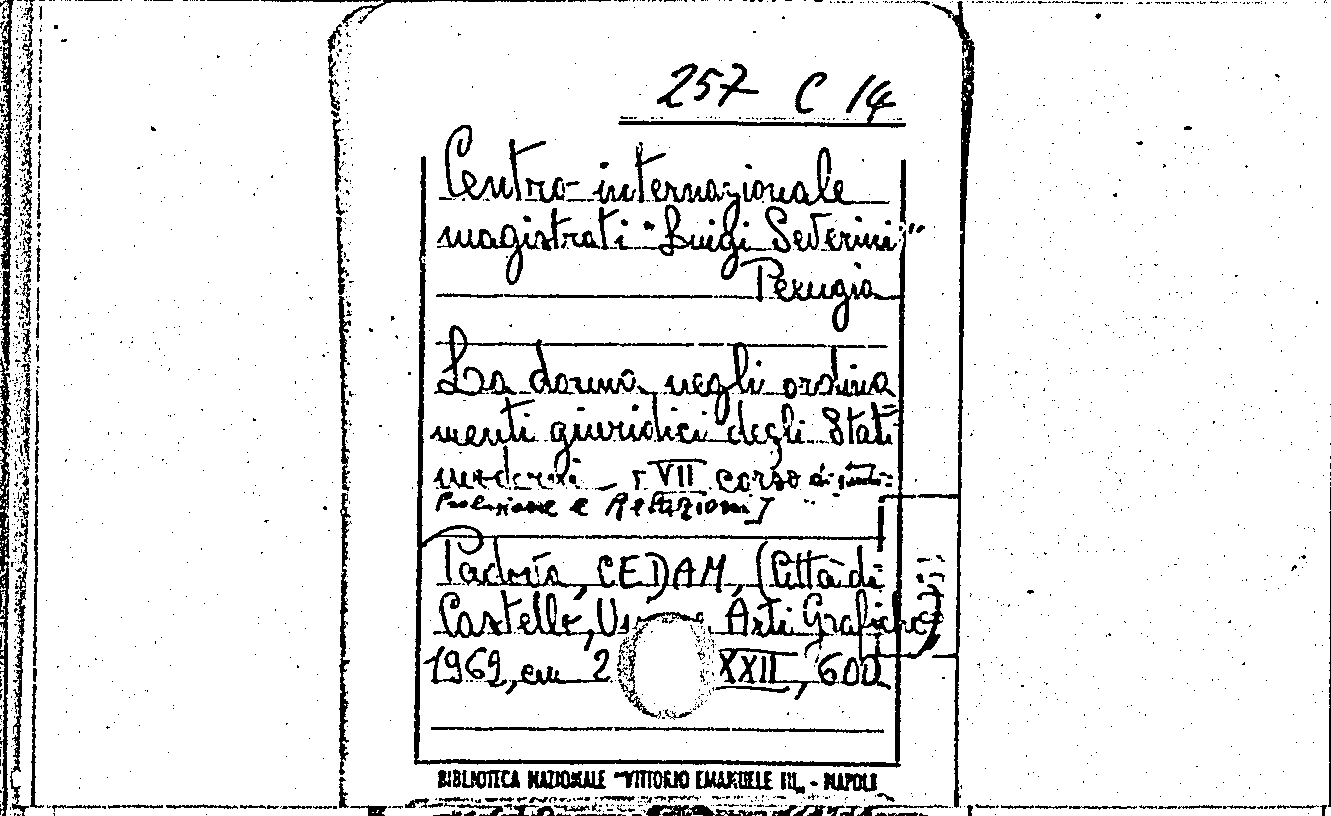 257 C 14
Centro internazionale
magistrati "Luigi Severini"
Perugia
La donna negli ordina
menti giuridici degli Stati
moderni - [VII corso di studi=
Prolusione e Relazioni]
Padova, CEDAM, (Città di
Castello, Arti Grafiche)
1969, cm 2 XXII, 600
BIBLIOTECA NAZIONALE "VITTORIO EMANUELE III" - NAPOLI